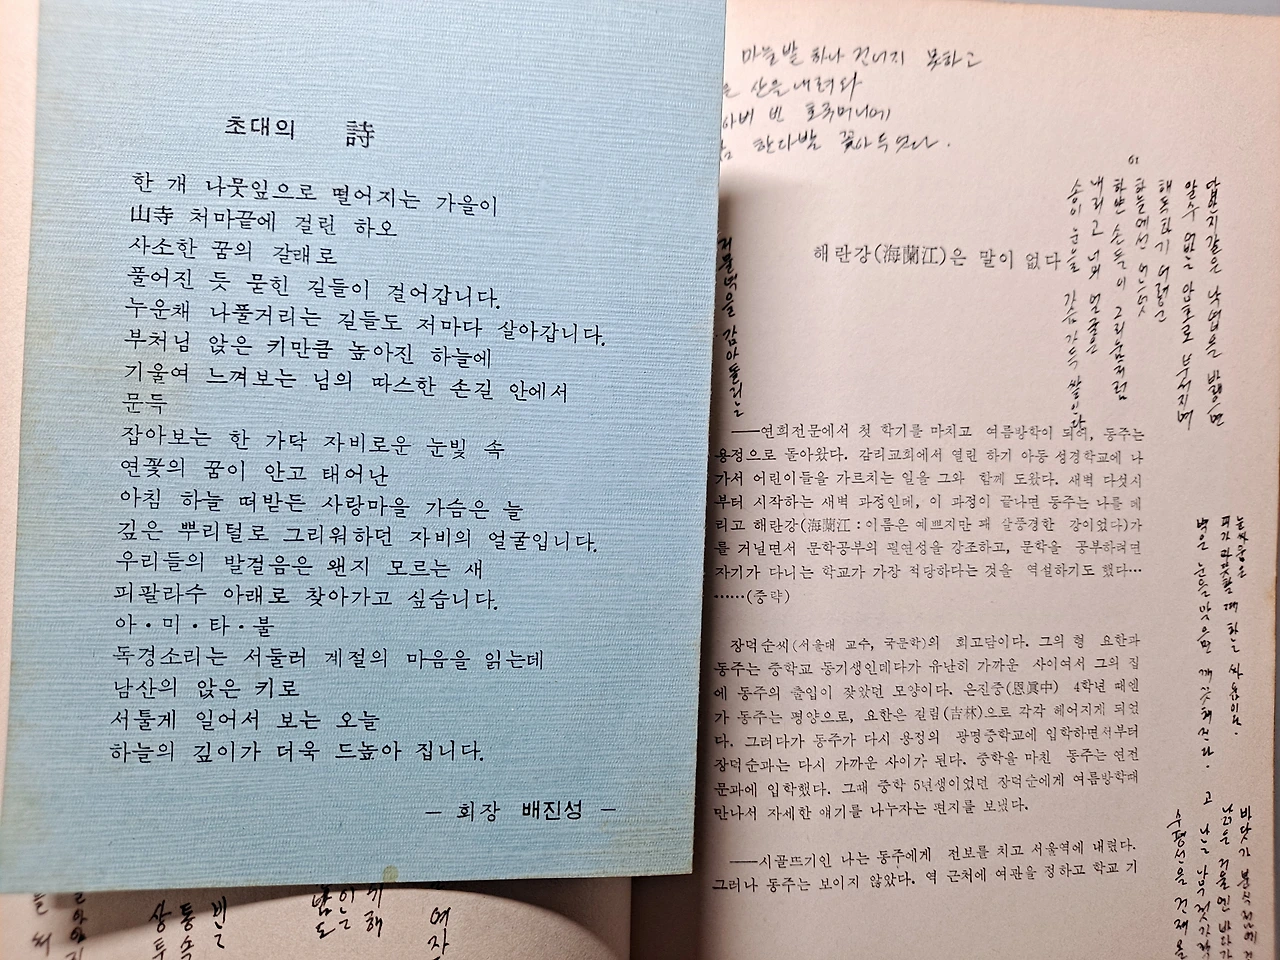 초대의 詩
한 개 나뭇잎으로 떨어지는 가을이
山寺 처마끝에 걸린 하오
사소한 꿈의 갈래로
풀어진 듯 묻힌 길들이 걸어갑니다.
누운채 나풀거리는 길들도 저마다 살아갑니다.
부처님 앉은 키만큼 높아진 하늘에
기울여 느껴보는 님의 따스한 손길 안에서
문득
잡아보는 한 가닥 자비로운 눈빛 속
연꽃의 꿈이 안고 태어난
아침 하늘 떠받든 사랑마을 가슴은 늘
깊은 뿌리털로 그리워하던 자비의 얼굴입니다.
우리들의 발걸음은 왠지 모르는 새
피팔라수 아래로 찾아가고 싶습니다.
아·미·타·불
독경소리는 서둘러 계절의 마음을 읽는데
남산의 앉은 키로
서툴게 일어서 보는 오늘
하늘의 깊이가 더욱 드높아 집니다.
— 회장 배진성 —
마늘밭 하나 건너지 못하고
산을 내려와
빈 호주머니에
한다발 꽂아 두었다.
해란강(海蘭江)은 말이 없다
알수 없는 암호로 부서지며
해독하기 어려운
하늘에선 어느덧
하얀 손톱이 그리움처럼
내리고 너의 얼굴은
송이 눈을 가슴가득 쌓인다
저물녘을 감아돌리는
——연희전문에서 첫 학기를 마치고 여름방학이 되어, 동주는
용정으로 돌아왔다. 감리교회에서 열린 하기 아동 성경학교에 나
가서 어린이들을 가르치는 일을 그와 함께 도왔다. 새벽 다섯시
부터 시작하는 새벽 과정인데, 이 과정이 끝나면 동주는 나를 데
리고 해란강(海蘭江:이름은 예쁘지만 꽤 살풍경한 강이었다)가
를 거닐면서 문학공부의 필연성을 강조하고, 문학을 공부하려면
자기가 다니는 학교가 가장 적당하다는 것을 역설하기도 했다…
……(중략)
장덕순씨(서울대 교수, 국문학)의 회고담이다. 그의 형 요한과
동주는 중학교 동기생인데다가 유난히 가까운 사이여서 그의 집
에 동주의 출입이 잦았던 모양이다. 은진중(恩眞中) 4학년 때엔
가 동주는 평양으로, 요한은 길림(吉林)으로 각각 헤어지게 되었
다. 그러다가 동주가 다시 용정의 광명중학교에 입학하면서부터
장덕순과는 다시 가까운 사이가 된다. 중학을 마친 동주는 연전
문과에 입학했다. 그때 중학 5년생이었던 장덕순에게 여름방학때
만나서 자세한 얘기를 나누자는 편지를 보냈다.
——시골뜨기인 나는 동주에게 전보를 치고 서울역에 내렸다.
그러나 동주는 보이지 않았다. 역 근처에 여관을 정하고 학교 기
눈싸움은
피가 따뜻할 때 하는 싸움이다.
맑은 눈을 맞으면 깨끗해진다.